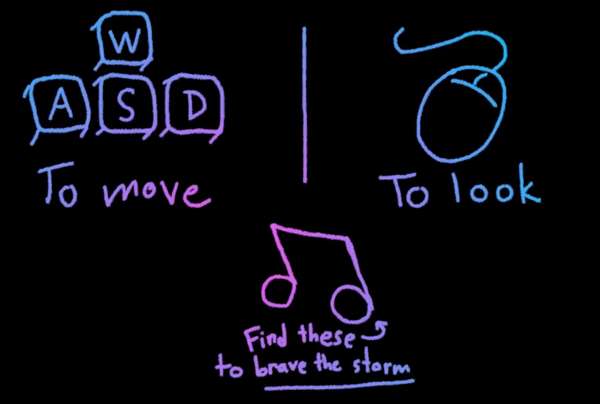 W
A S D
To move
To look
Find these
to brave the storm